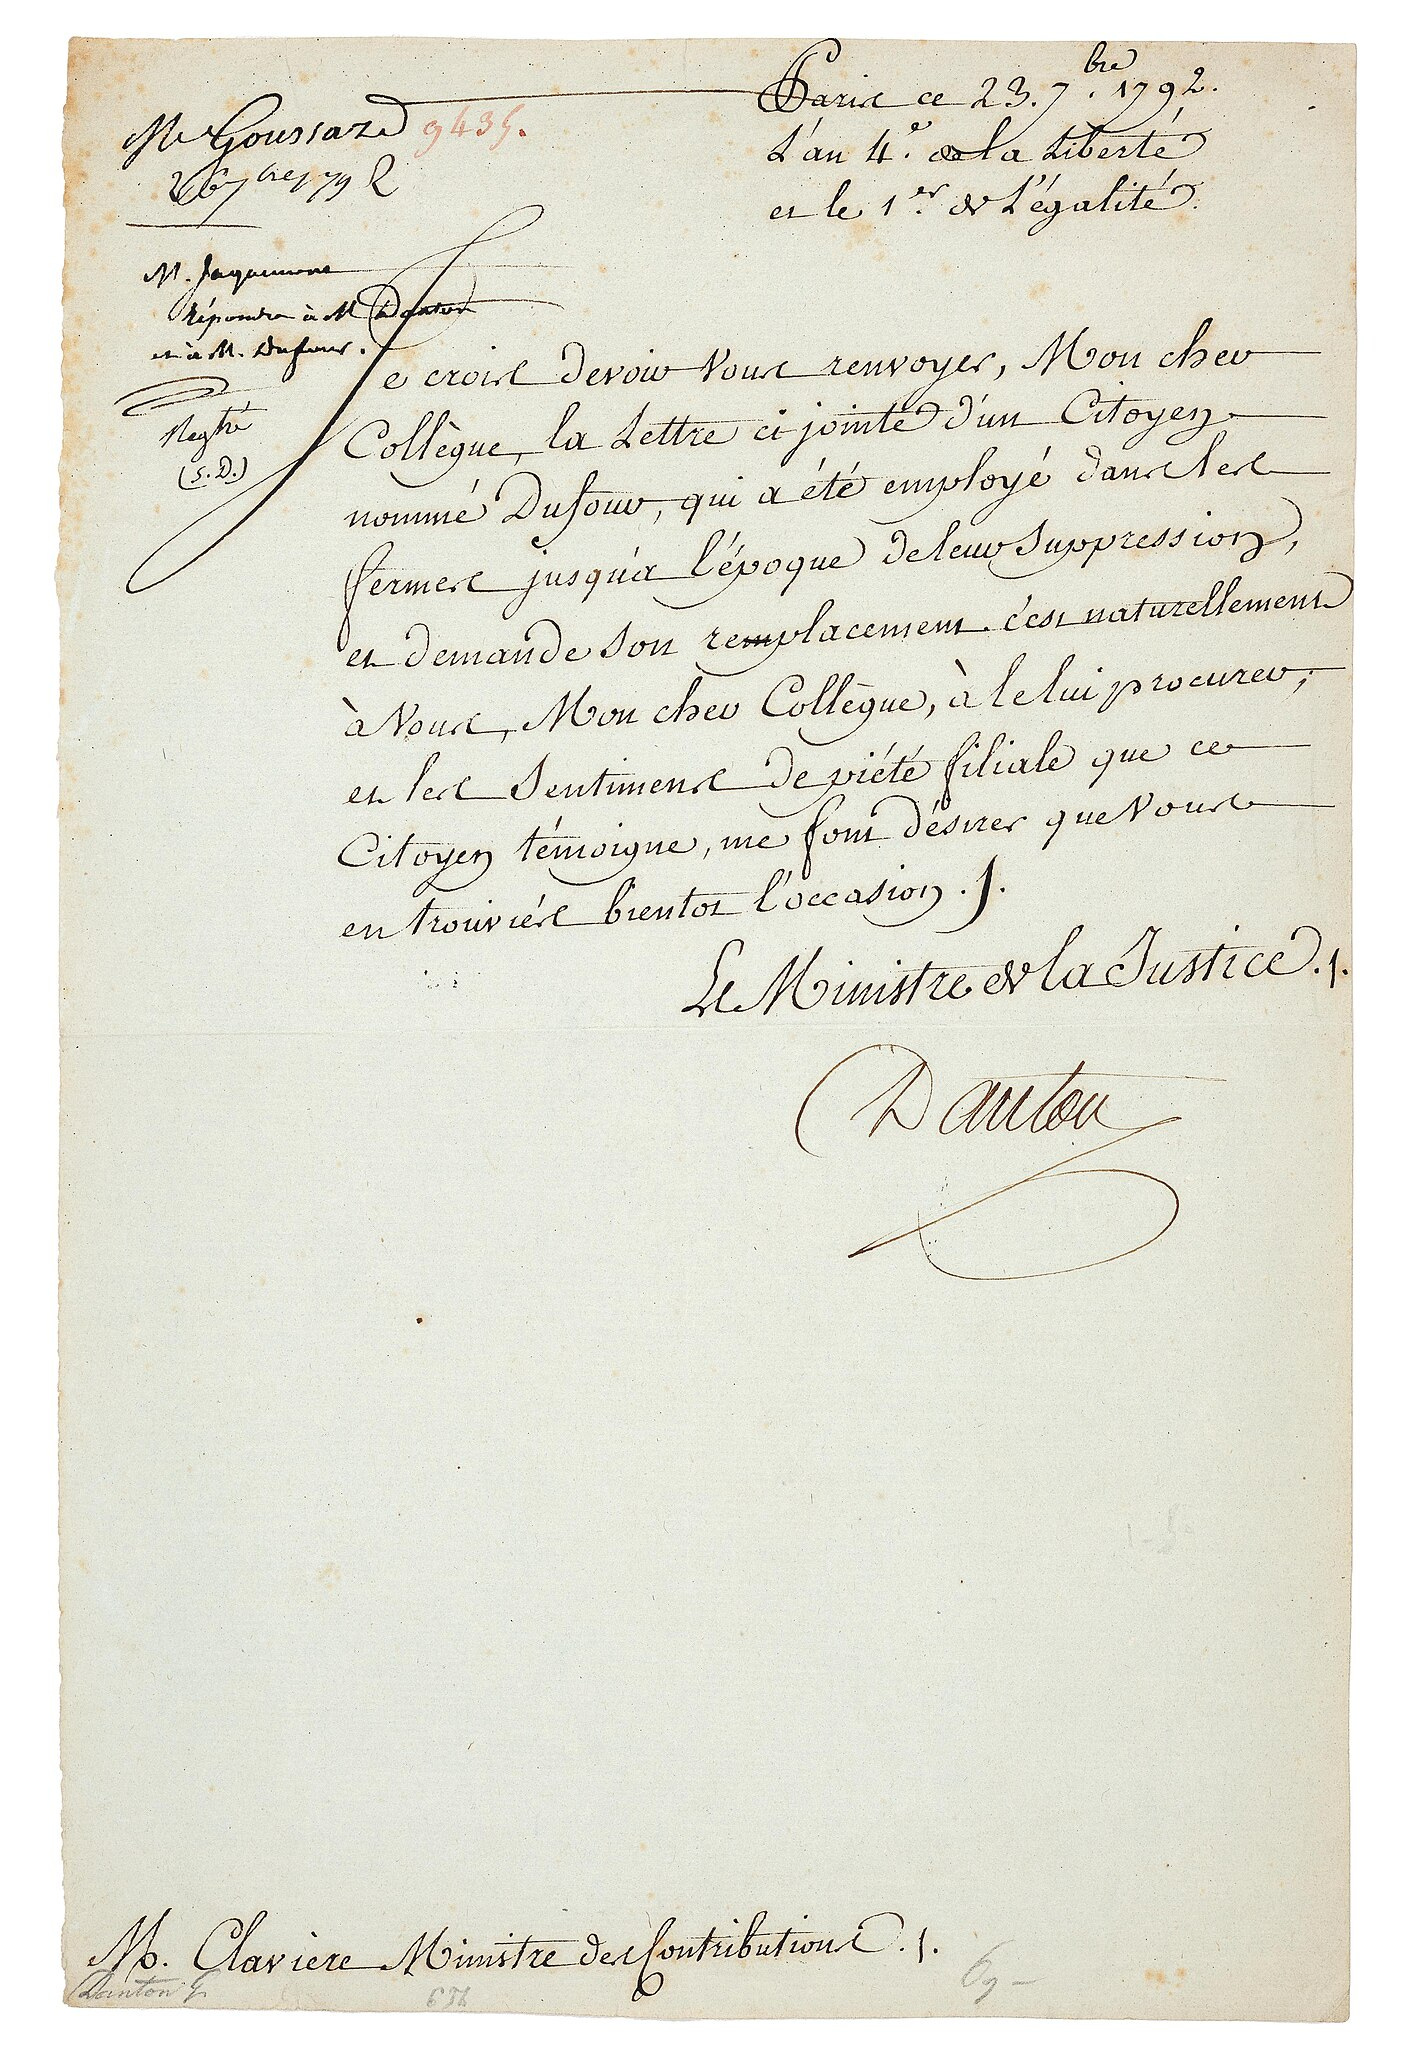 Paris ce 23. 7.bre 1792.
L'an 4.e de la Liberté
et le 1.er de L'égalité.
Mr Goussard 9435.
26 7bre 1792
M. Jaquemont
répondre à M Danton
et à M. Dufour.
Regtré
(S. D.)
Je crois devoir Vous renvoyer, Mon cher
Collègue, la Lettre ci jointe d'un Citoyen
nommé Dufour, qui a été employé dans les
fermes jusqu'à l'époque de leur Suppression,
et demande Son remplacement. c'est naturellement
à Vous, Mon cher Collègue, à le lui procurer;
et les Sentimens de piété filiale que ce
Citoyen témoigne, me font désirer que Vous
en trouviés bientot l'occasion ./.
Le Ministre de la Justice ./.
Danton
M. Claviere Ministre des Contributions ./.
Danton G.
69 -